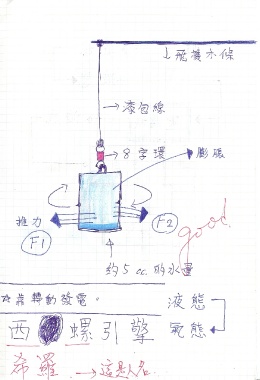 飛機木條
漆包線
8字環
膨脹
推力
F1
F2
good
約5 cc.的水量
☆靠轉動發電。
液態
氣態
西螺引擎
希羅 →這是人名